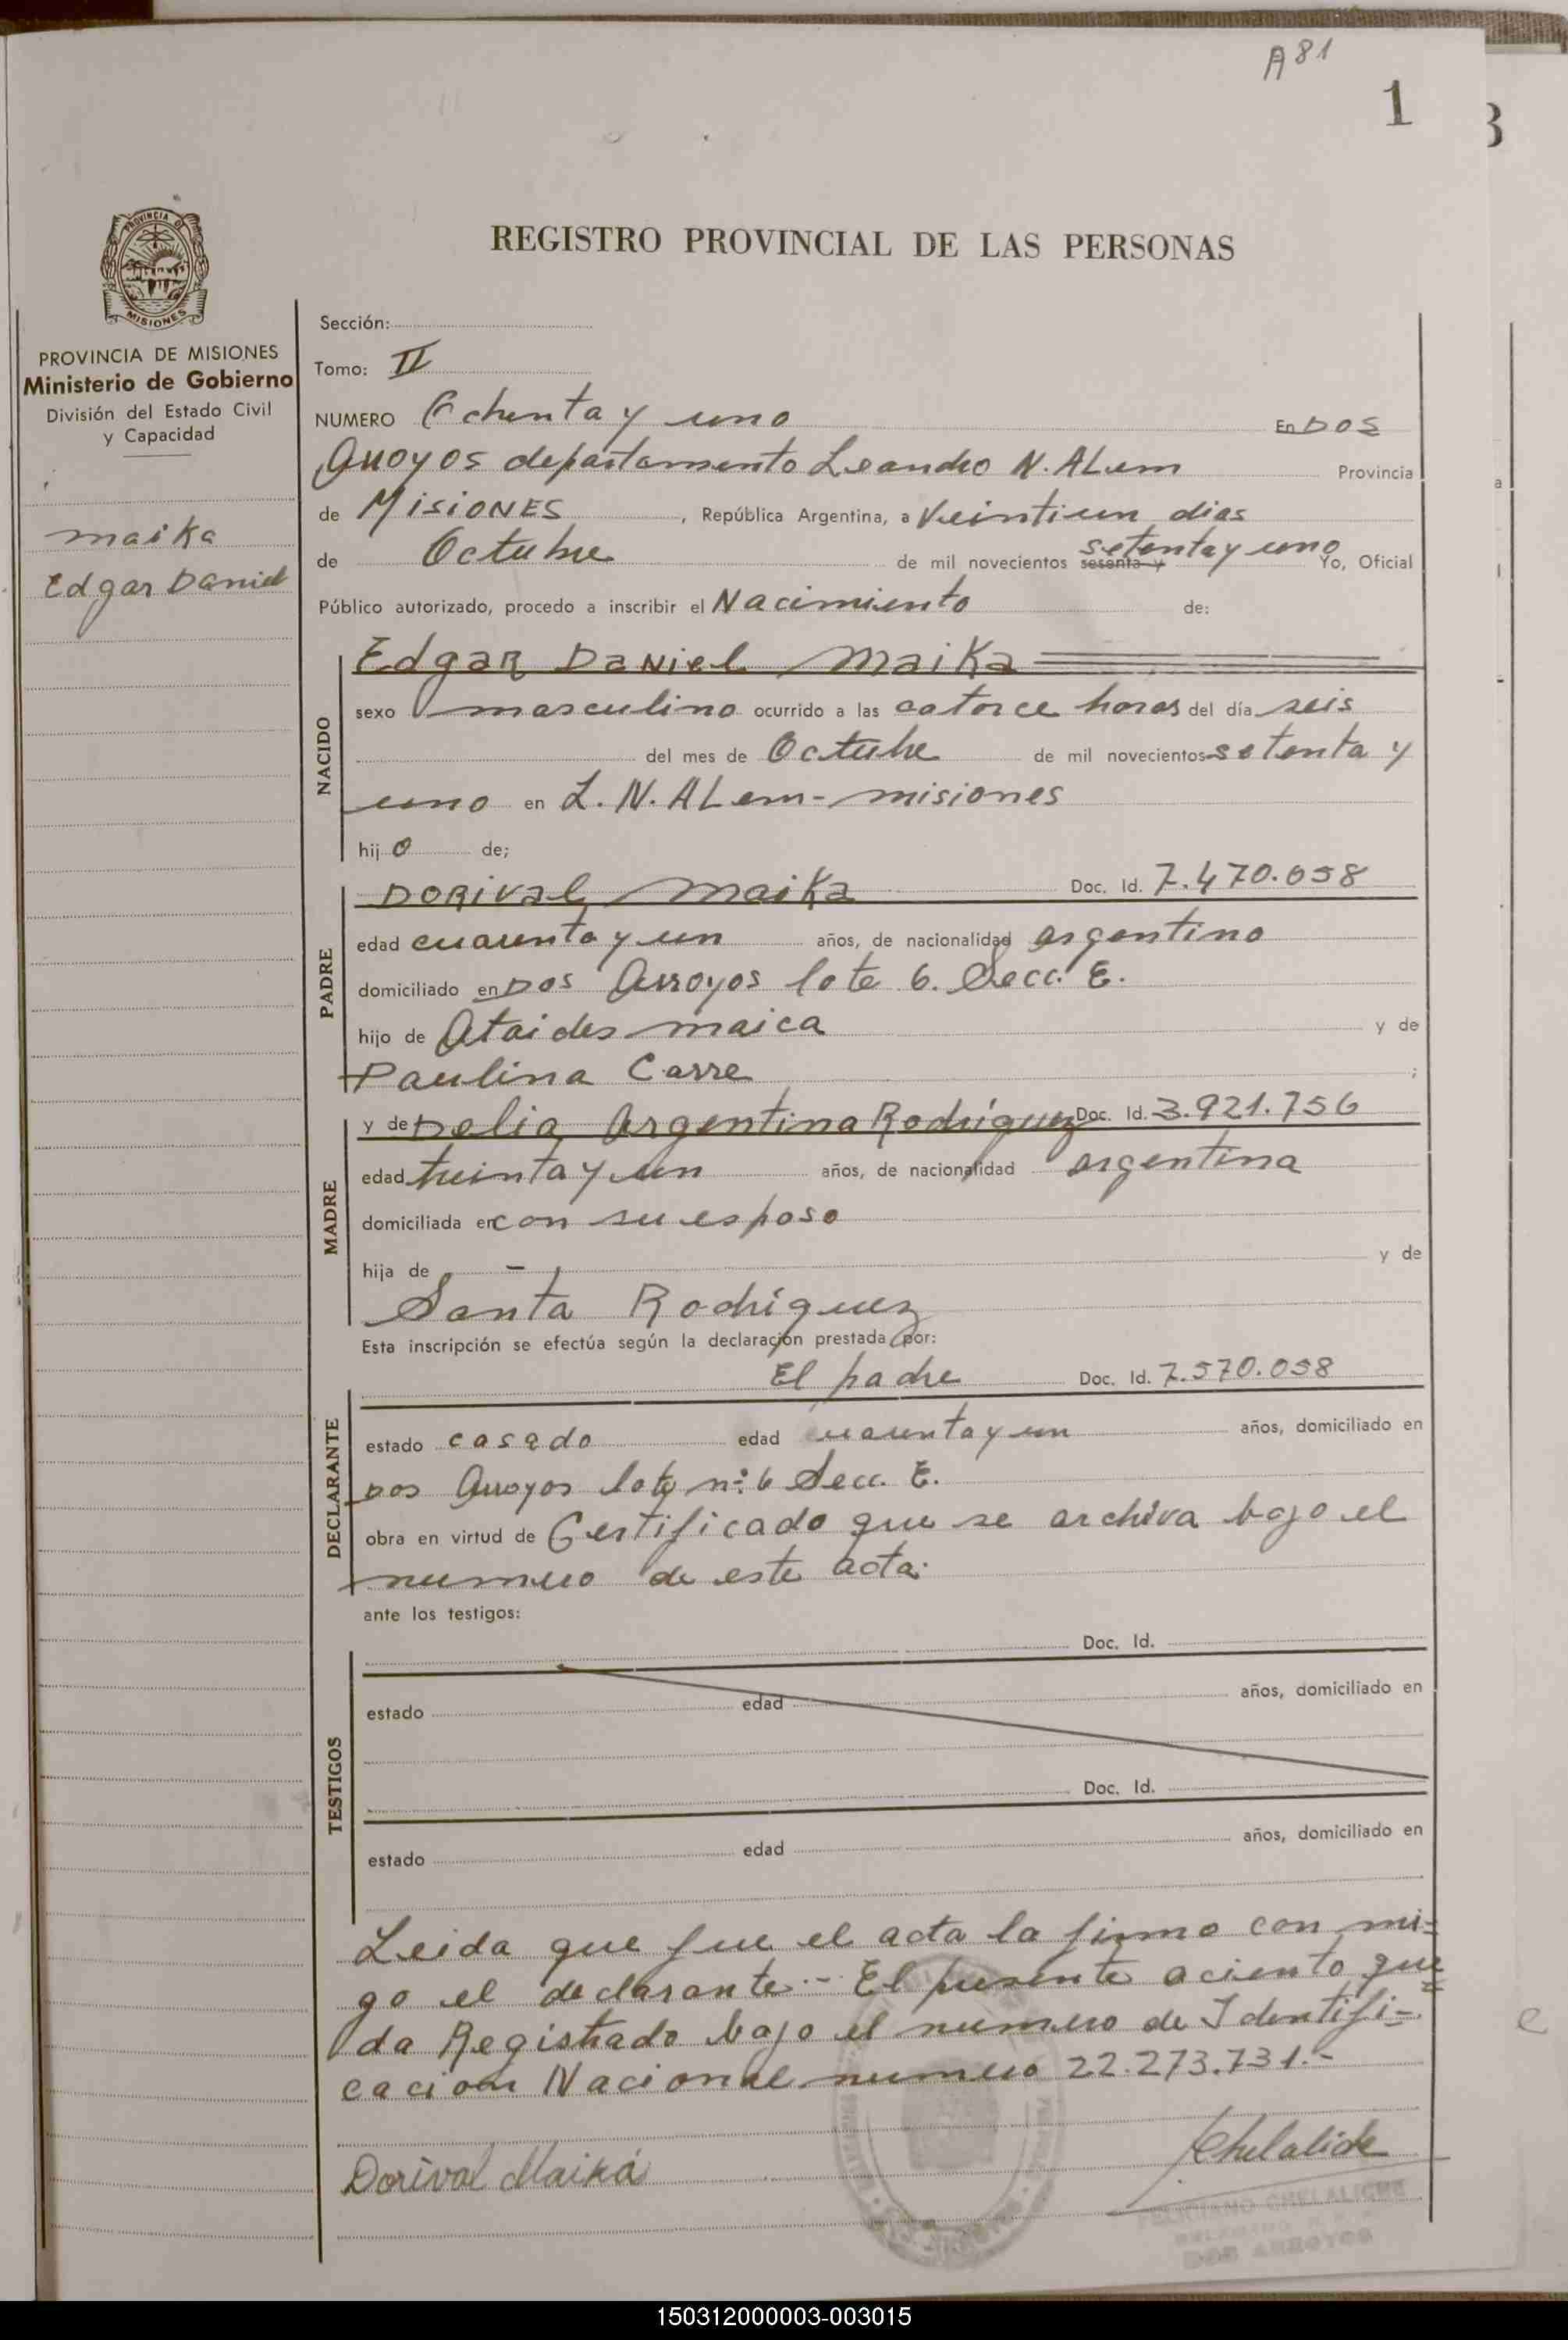 A81
1
3
REGISTRO PROVINCIAL DE LAS PERSONAS
PROVINCIA DE
MISIONES
PROVINCIA DE MISIONES
Ministerio de Gobierno
División del Estado Civil
y Capacidad
maika
Edgar Daniel
Sección:
Tomo: II
NUMERO Ochenta y uno En DOS
Arroyos departamento Leandro N. ALem Provincia
de MisiONES , República Argentina, a Veintiun dias
de Octubre de mil novecientos sesenta y setenta y uno Yo, Oficial
Público autorizado, procedo a inscribir el Nacimiento de:
NACIDO
Edgar Daniel Maika
sexo masculino ocurrido a las catorce horas del día seis
del mes de Octubre de mil novecientos setenta y
uno en L. N. ALem - misiones
hijo de;
PADRE
Dorival Maika Doc. Id. 7.470.058
edad cuarenta y un años, de nacionalidad argentino
domiciliado en Dos Arroyos lote 6. Secc. E.
hijo de Ataides maica y de
Paulina Carre ;
MADRE
y de Delia Argentina Rodríguez Doc. Id. 3.921.756
edad treinta y un años, de nacionalidad argentina
domiciliada en con su esposo
hija de - y de
Santa Rodríguez
Esta inscripción se efectúa según la declaración prestada por:
DECLARANTE
El padre Doc. Id. 7.570.058
estado casado edad cuarenta y un años, domiciliado en
Dos Arroyos lote nº 6 Secc. E.
obra en virtud de Certificado que se archiva bajo el
numero de este acta.
ante los testigos:
TESTIGOS
Doc. Id.
estado edad años, domiciliado en
Doc. Id.
estado edad años, domiciliado en
Leida que fue el acta la firma con mi=
go el declarante.- El presente aciento que=
da Registrado bajo el numero de Identifi=
cacion Nacional numero 22.273.731.-
Dorival Maiká
Chelaliche
FELICIANO CHELALICHE
DOS ARROYOS
150312000003-003015